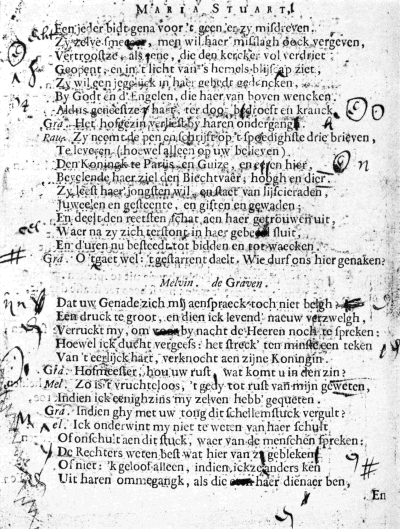 MARIA STUART.
Een jeder bidt gena voor 't geen er zy misdreven,
Zy zelve , men wil haer misslagh oock vergeven,
Vertroostze, als eene, die den kercker vol verdriet
Geopent, en in 't licht van 's hemels blijschap ziet,
Zy wil ge in haer gebedt gedencken,
By Godt en d'Engelen, die haer van boven wencken.
Aldus geneestze 't hart, ter doot bedroeft en kranck.
Gra. Het hofgezin verliest by haren ondergang
Rau. Zy neemt de pen en schrijft op 't spoedighste drie brieven,
Te leveren (hoewel alleen op uw believen)
Den Koningk te Parijs, en Guize, en eenen hier,
Bevelende haer ziel den Biechtvaêr, hoogh en dier.
Zy leest haer jongsten wil, en staet van lijfcieraden,
Juweelen en gesteente, en giften en gewaden;
En deelt den reetsten schat aen haer getrouwen uit,
Waer na zy zich terstont in haer gebedt sluit,
En d'uren nu besteedt tot bidden en tot waecken.
Gra. O 'tgaet wel: 't gestarrent daelt. Wie durf ons hier genaken?
Melvin. de Graven.
Dat uw Genade zich mij aenspraeck toch niet belgh
Een druck te groot, en dien ick levend' naeuw verzwelgh,
Verruckt my, om by nacht de Heeren noch te spreken:
Hoewel ick ducht vergeefs: het streck' ten minste een teken
Van 't eerlijck hart, verknocht aen zijne Koningin.
Gra. Hofmeester, hou uw rust, wat komt u in den zin?
Mel. Zo is 't vruchteloos, 't gedy tot rust van mijn geweten,
Indien ick eenighzins my zelven hebb' gequeten.
Gra. Indien ghy met uw tong dit schellemstuck vergult?
el. Ick onderwint my niet te weten van haer schult
Of onschult aen dit stuck, waer van de menschen spreken:
De Rechters weten best wat hier van zy gebleken
Of niet: 'k geloof alleen, indien ickze anders ken
Uit haren ommegangk, als die haer dienaer ben,
En